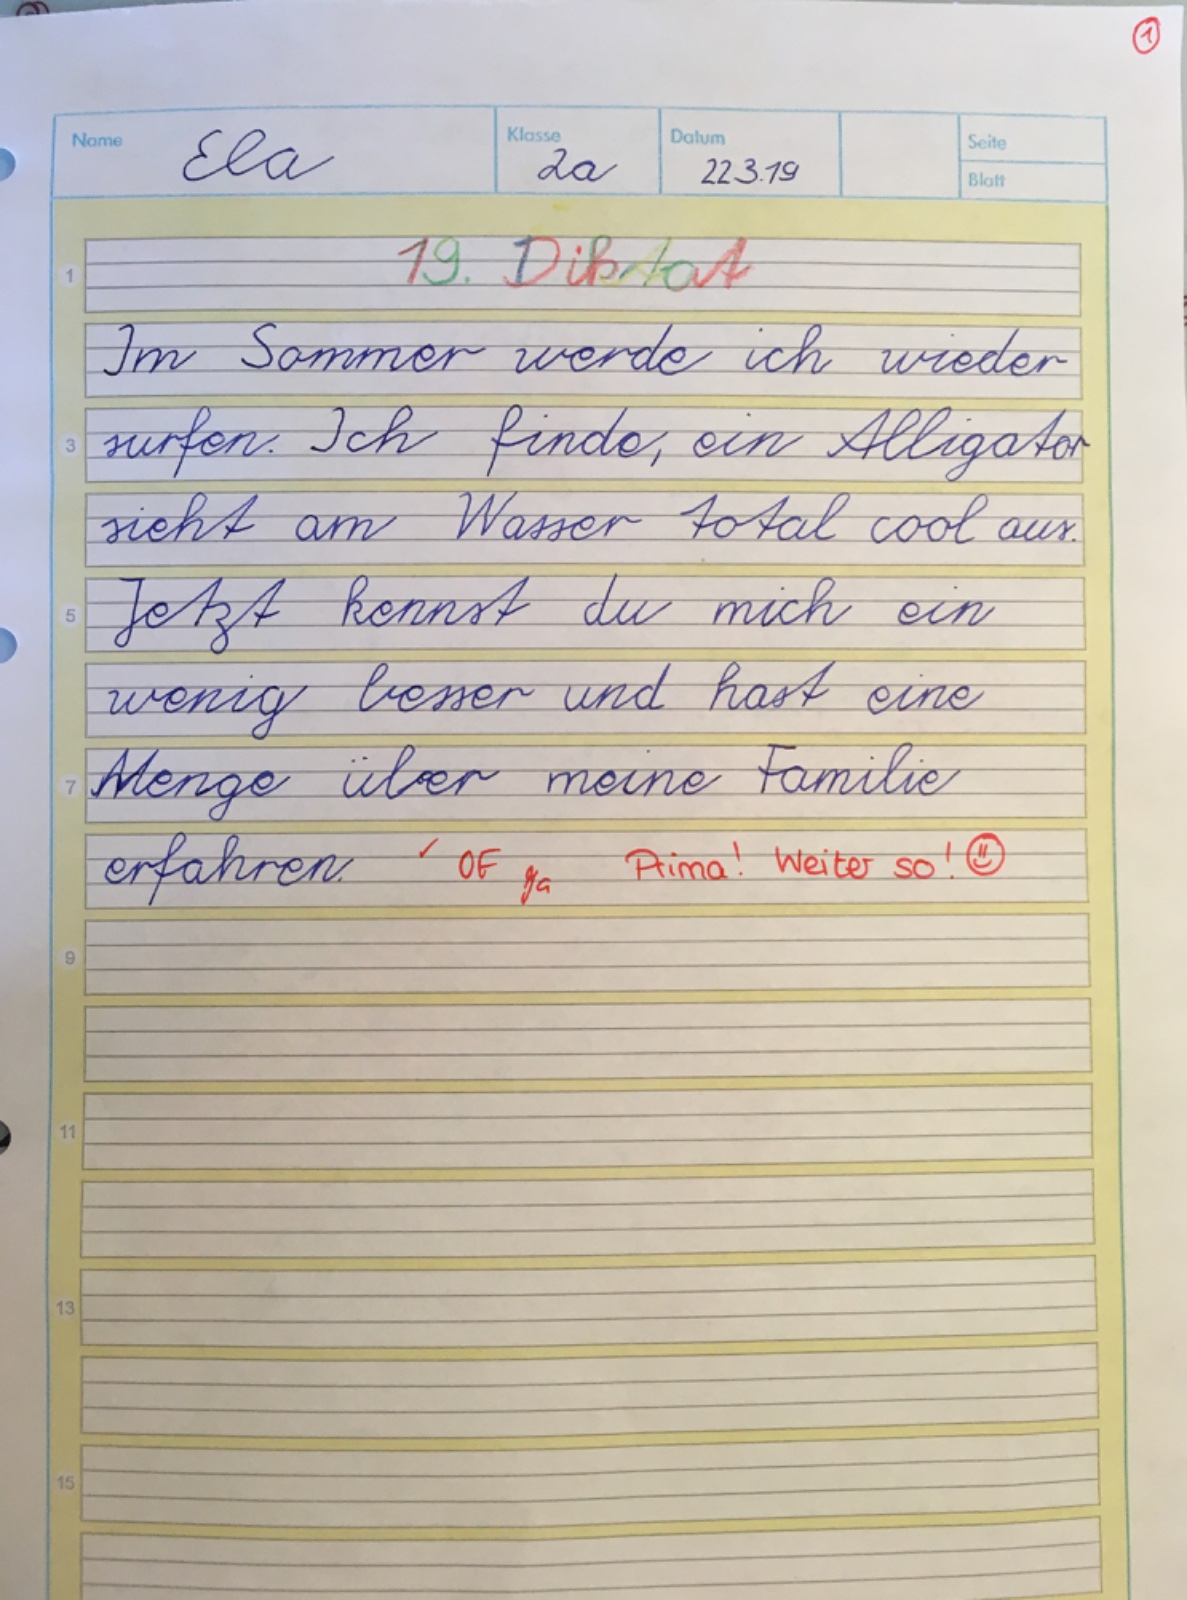 1
Name Ela Klasse 2a Datum 22.3.19 Seite
Blatt
1 19. Diktat
Im Sommer werde ich wieder
3 surfen. Ich finde, ein Alligator
sieht am Wasser total cool aus.
5 Jetzt kennst du mich ein
wenig besser und hast eine
7 Menge über meine Familie
erfahren. ✓ 0F Prima! Weiter so!
9
11
13
15